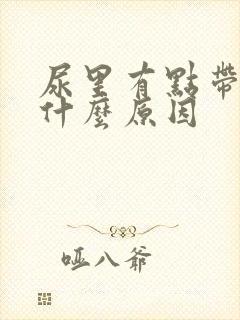 尿里有點帶
什麼原因
哑八爺